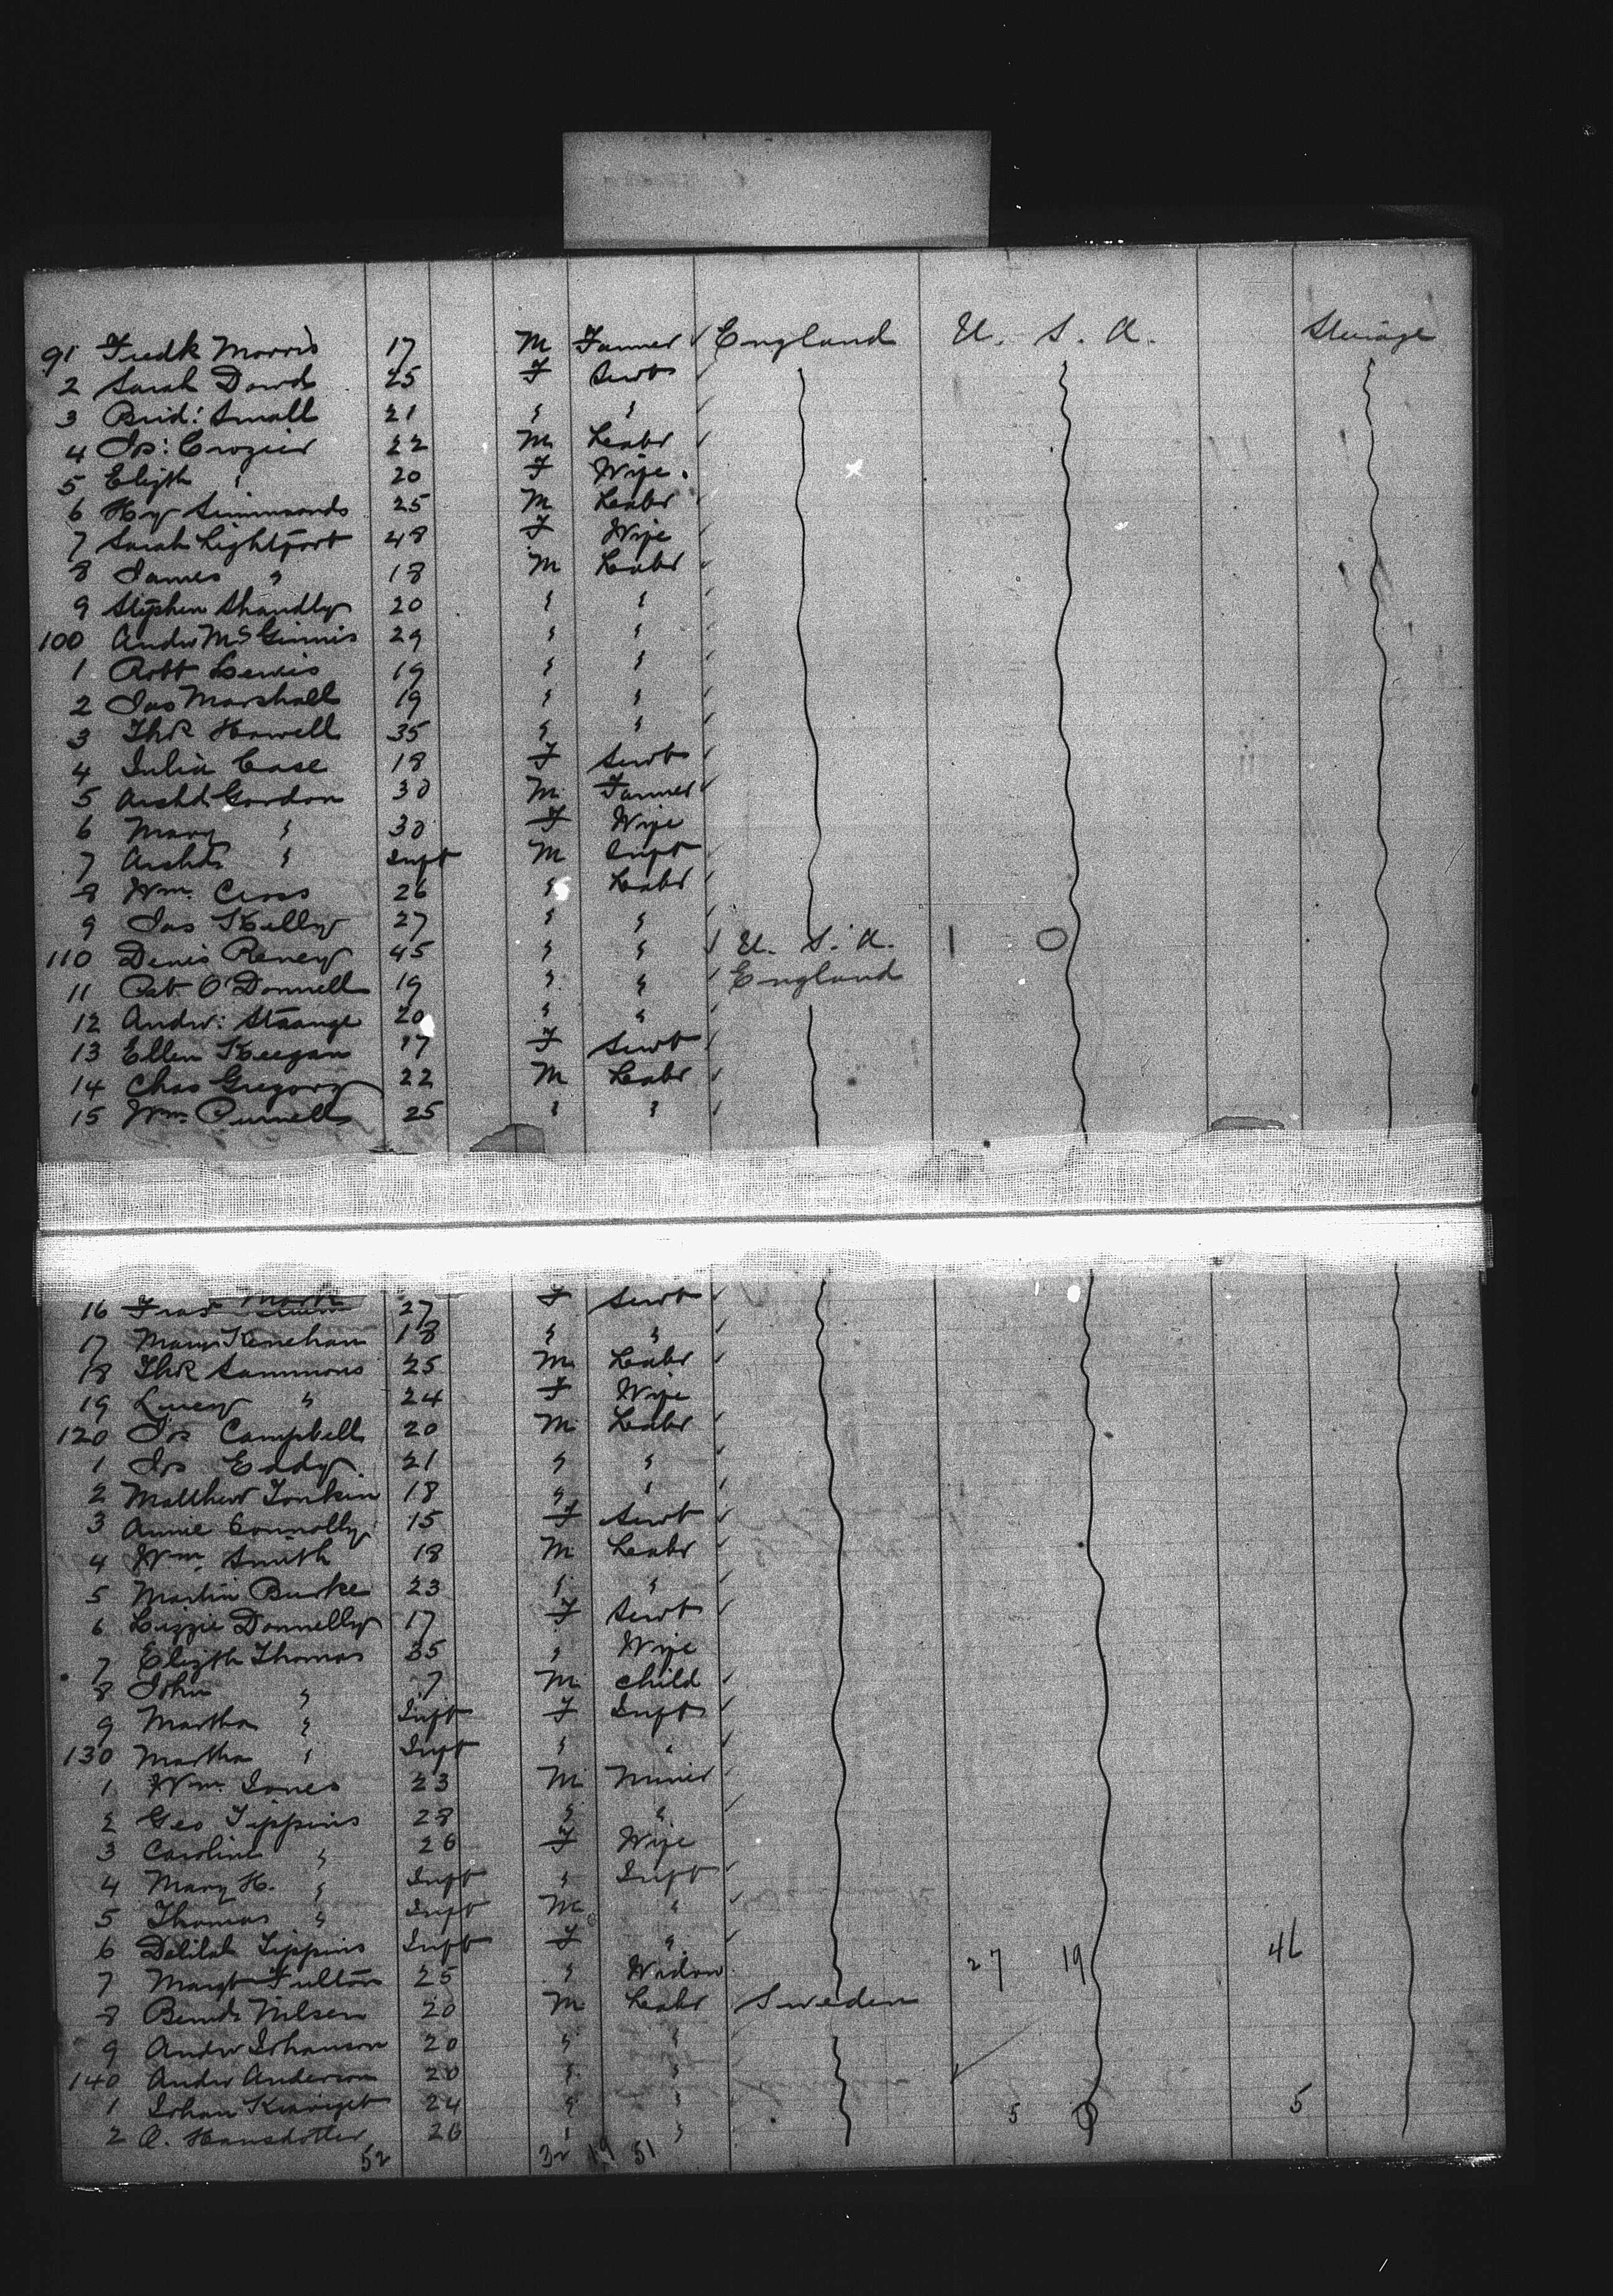 91 Fredk Morris 17 M Farmer ✓ England U. S. A. Steerage
2 Sarah Dowd 25 F Servt ✓
3 Brid: Small 21 " " ✓
4 Jos: Crozier 22 M Labr ✓
5 Elizth " 20 F Wife.
6 Hy Simmonds 25 M Labr ✓
7 Sarah Lightfoot 48 F Wife ✓
8 James " 18 M Labr ✓
9 Stephen Shandly 20 " " ✓
100 Andw McGinnis 29 " " ✓
1 Robt Lewis 19 " " ✓
2 Jas Marshall 19 " " ✓
3 Thos Howell 35 " " ✓
4 Julia Case 18 F Servt ✓
5 Archd Gordon 30 M Farmer ✓
6 Mary " 30 F Wife
7 Archd " Inft M Inft ✓
8 Wm. Cross 26 " Labr ✓
9 Jas Kelly 27 " " ✓
110 Denis Reney 45 " " ✓ U. S. A. 1 0
11 Pat O'Donnell 19 " " ✓ England
12 Andw: Strange 20 " " ✓
13 Ellen Keegan 17 F Servt ✓
14 Chas Gregory 22 M Labr ✓
15 Wm. Purnell 25 " " ✓
16 Fras 27 F Servt ✓
17 Mary Keneham 18 " " ✓
18 Thos Sammons 25 M Labr ✓
19 Lucy " 24 F Wife
120 Jos Campbell 20 M Labr ✓
1 Jos Eady 21 " " ✓
2 Matthew Tonkin 18 " " ✓
3 Annie Connolly 15 F Servt ✓
4 Wm. Smith 18 M Labr ✓
5 Martin Burke 23 " " ✓
6 Lizzie Donnelly 17 F Servt ✓
7 Elizth Thomas 35 " Wife
8 John " 7 M Child ✓
9 Martha " Inft F Inft ✓
130 Martha " Inft " " ✓
1 Wm. Jones 23 M Miner ✓
2 Geo Tippins 28 " " ✓
3 Caroline " 26 F Wife
4 Mary H. " Inft " Inft ✓
5 Thomas " Inft M " ✓
6 Delilah Tippins Inft F " ✓
7 Margt Fulton 25 " Widow 27 19 46
8 Bernd Nilsen 20 M Labr Sweden
9 Andw Johanson 20 " "
140 Andw Anderson 20 " "
1 Johan 24 " " 5 0 5
2 A. Hansdotter 26 " "
52 32 19 51